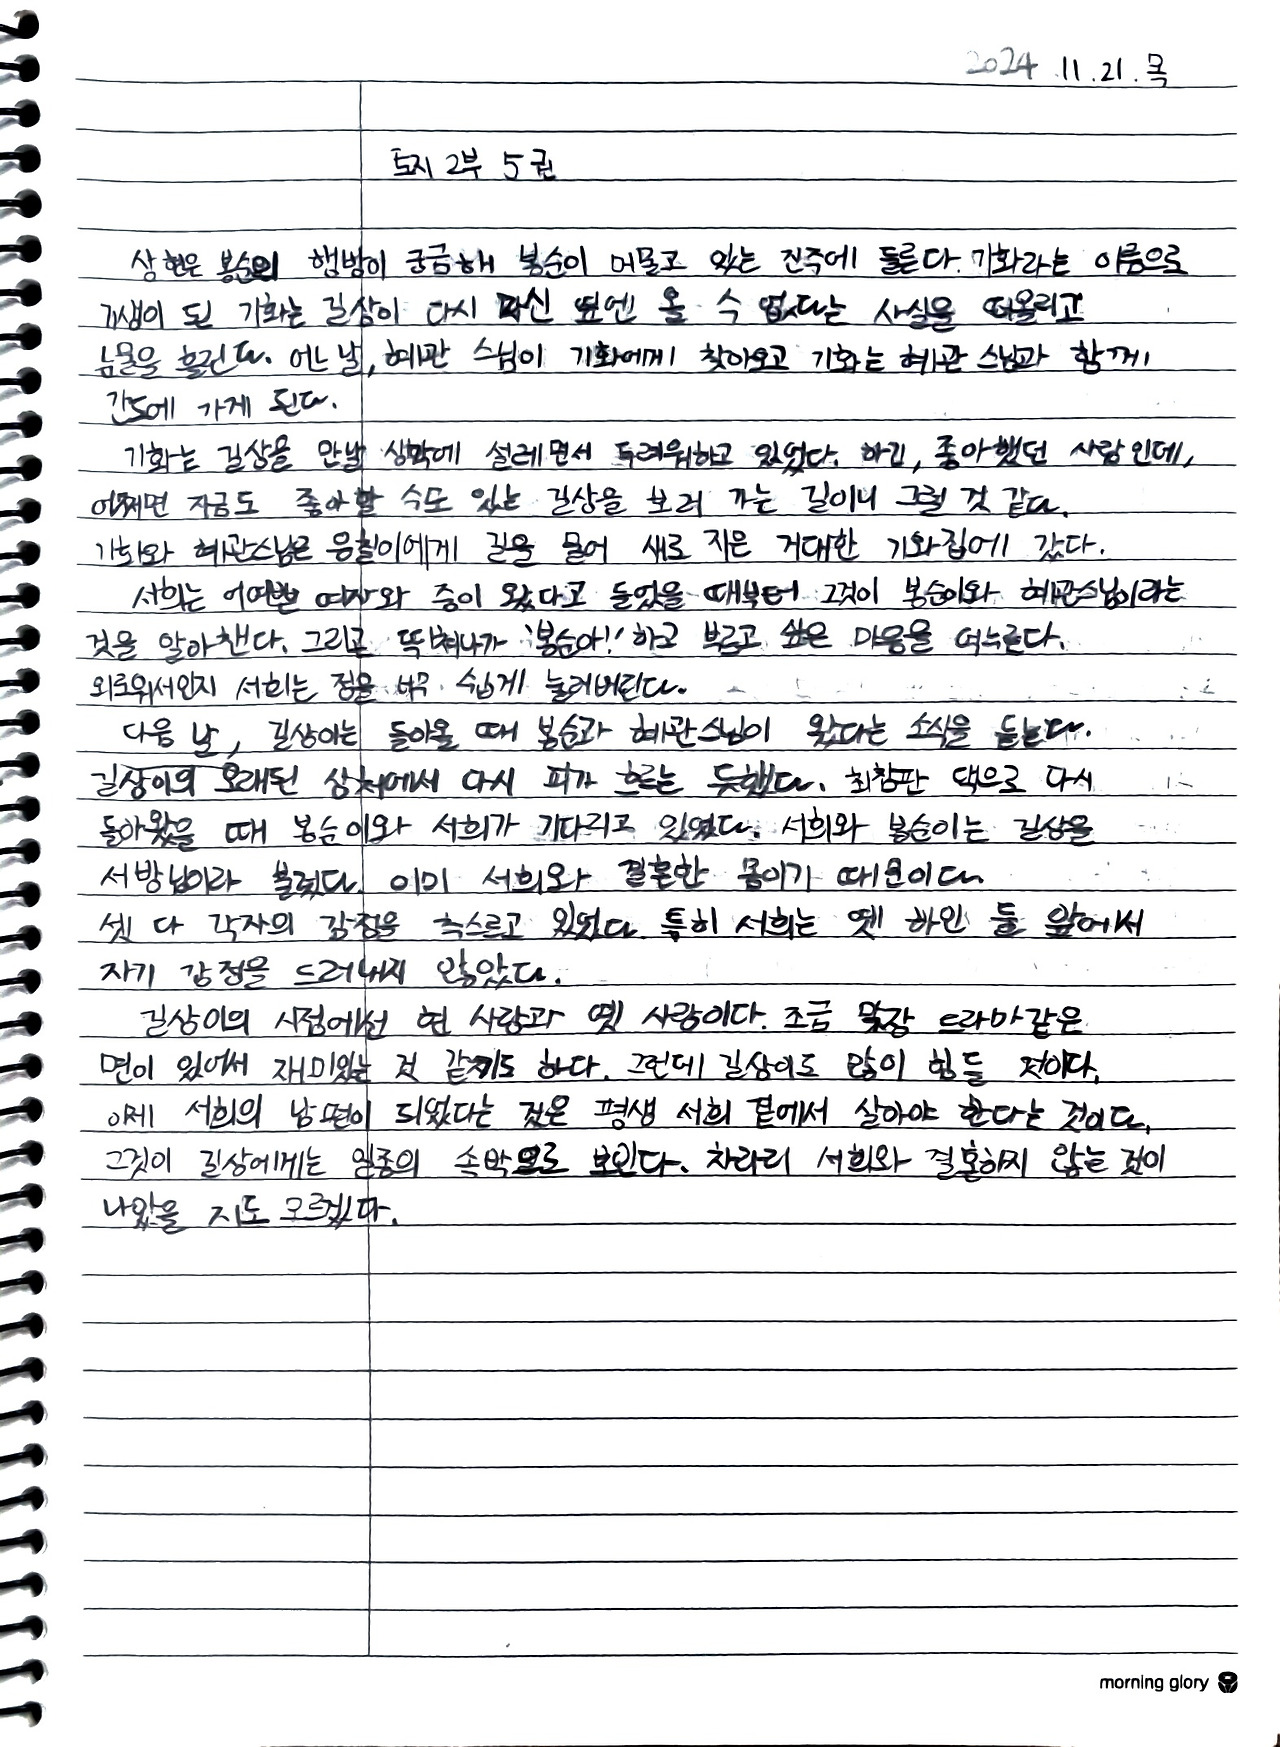 2024 11.21.목
토지 2부 5권
상현은 봉순의 행방이 궁금해 봉순이 머물고 있는 진주에 들른다. 기화라는 이름으로
기생이 된 기화는 길상이 다시 자신 옆엔 올 수 없다는 사실을 떠올리고
눈물을 흘린다. 어느 날, 혜관 스님이 기화에게 찾아오고 기화는 혜관 스님과 함께
간도에 가게 된다.
기화는 길상을 만날 생각에 설레면서 두려워하고 있었다. 하긴, 좋아했던 사람인데,
어쩌면 지금도 좋아할 수도 있는 길상을 보러 가는 길이니 그럴 것 같다.
기화와 혜관스님은 응칠이에게 길을 물어 새로 지은 거대한 기와집에 갔다.
서희는 어여쁜 여자와 중이 왔다고 들었을 때부터 그것이 봉순이와 혜관스님이라는
것을 알아챈다. 그리고 뛰쳐나가 '봉순아!' 하고 부르고 싶은 마음을 억누른다.
외로워서인지 서희는 정을 너무 쉽게 눌러버린다.
다음 날, 길상이는 돌아올 때 봉순과 혜관스님이 왔다는 소식을 듣는다.
길상이의 오래된 상처에서 다시 피가 흐르는 듯했다. 최참판 댁으로 다시
돌아왔을 때 봉순이와 서희가 기다리고 있었다. 서희와 봉순이는 길상을
서방님이라 불렀다. 이미 서희와 결혼한 몸이기 때문이다.
셋 다 각자의 감정을 추스르고 있었다. 특히 서희는 옛 하인 둘 앞에서
자기 감정을 드러내지 않았다.
길상이의 시점에선 현 사랑과 옛 사랑이다. 조금 막장 드라마같은
면이 있어서 재미있는 것 같기도 하다. 그런데 길상이도 많이 힘들 것이다.
이제 서희의 남편이 되었다는 것은 평생 서희 곁에서 살아야 한다는 것이다.
그것이 길상에게는 일종의 속박으로 보인다. 차라리 서희와 결혼하지 않는 것이
나았을 지도 모르겠다.
morning glory